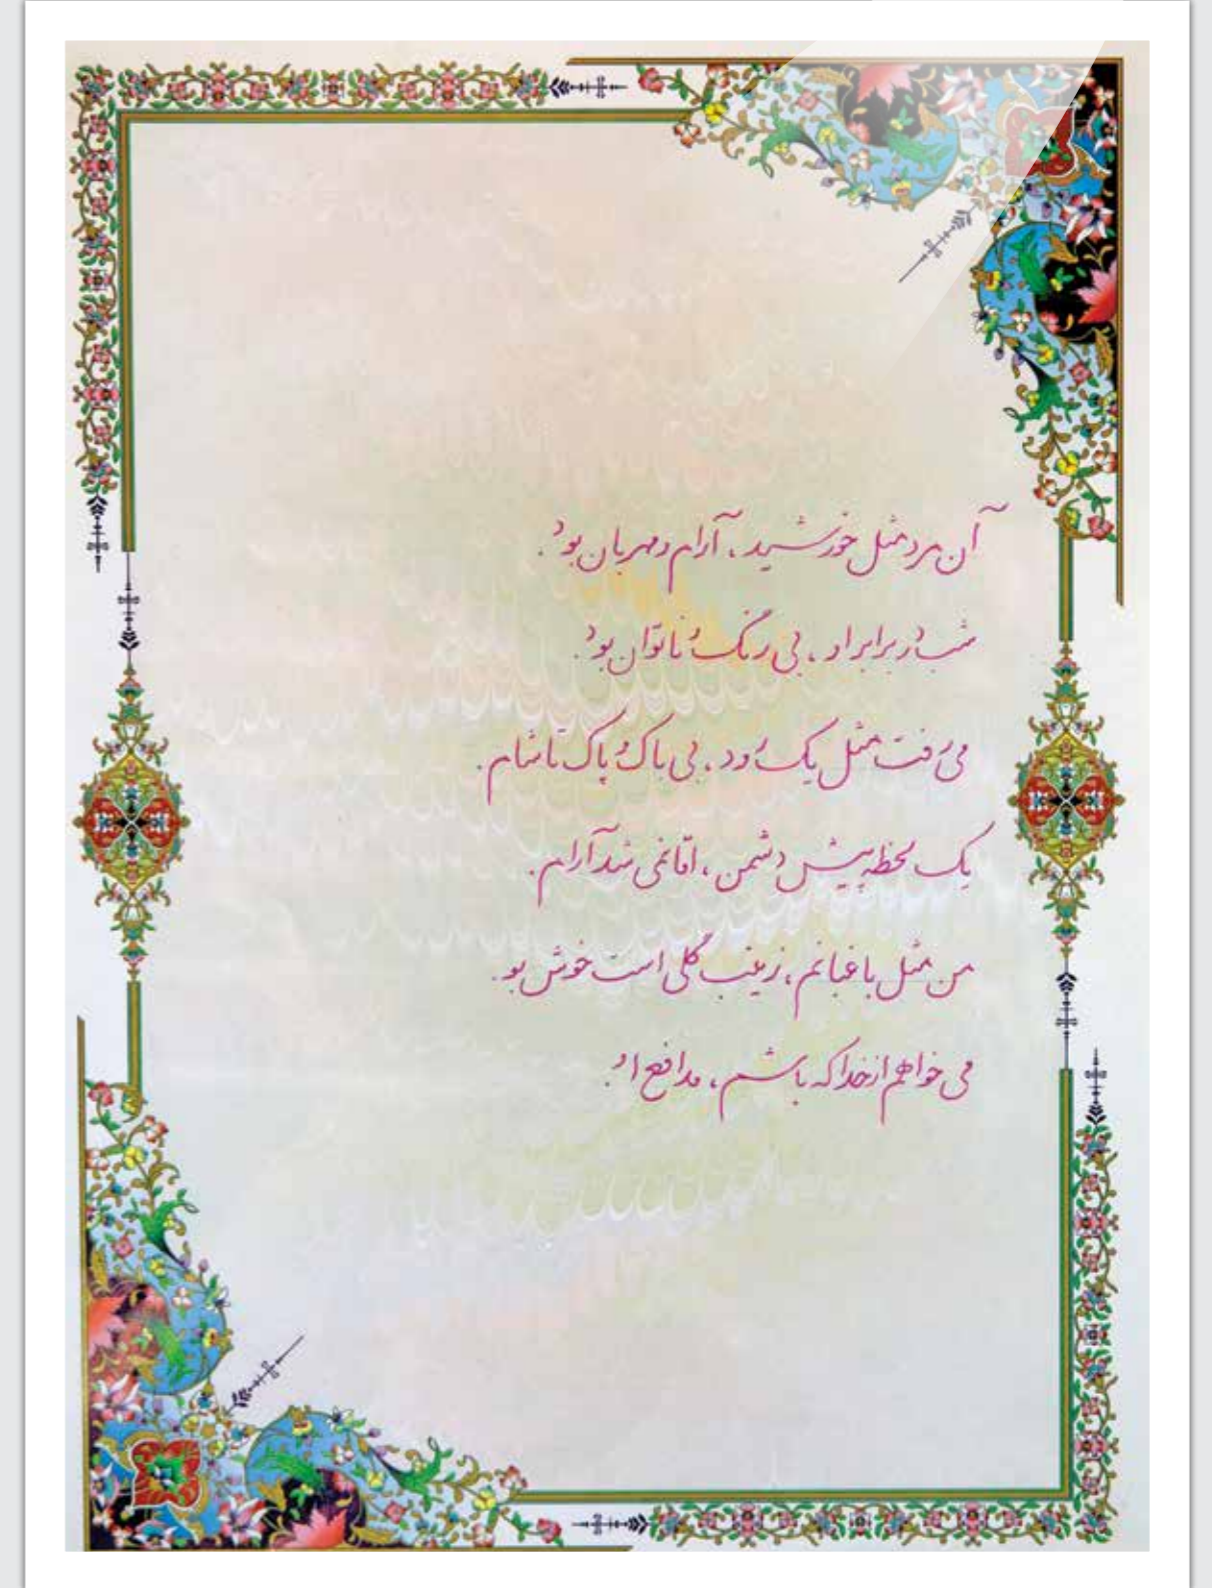 آن مرد مثل خورشید، آرام و مهربان بود.
شب در برابر او، بی رنگ و ناتوان بود.
می رفت مثل یک رود، بی باک و پاک تا شام.
یک لحظه پیش دشمن، امّا نمی شد آرام.
من مثل باغبانم، زینب گلی است خوش بو.
می خواهم از خدا که باشم، مدافع او.